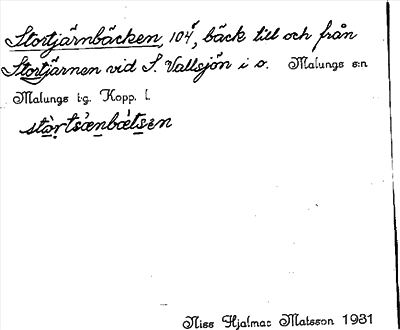 Stortjärnbäcken, 104, bäck till och från
Stortjärnen vid S. Vallsjön i s. Malungs s:n
Malungs t:g. Kopp. l.
Nils Hjalmar Matsson 1931